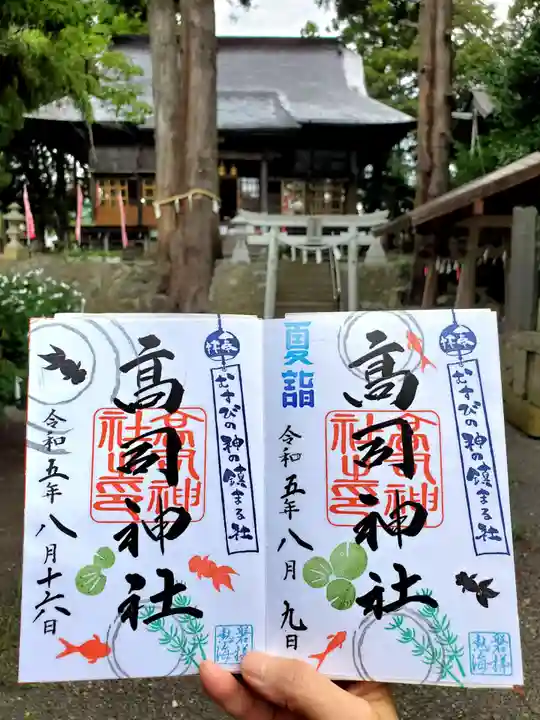 夏詣
奉拝
むすびの神の鎮まる社
高司神社
高司神社之印
令和五年八月九日
磐梯熱海
奉拝
むすびの神の鎮まる社
高司神社
高司神社之印
令和五年八月十六日
磐梯熱海